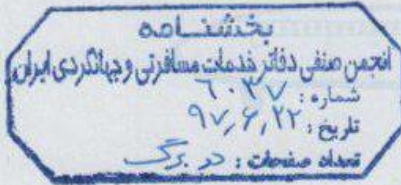 بخشنامه
انجمن صنفی دفاتر خدمات مسافرتی و جهانگردی ایران
شماره : ۶۰۳۷
تاریخ : ۹۷٫۶٫۲۲
تعداد صفحات : در برگ